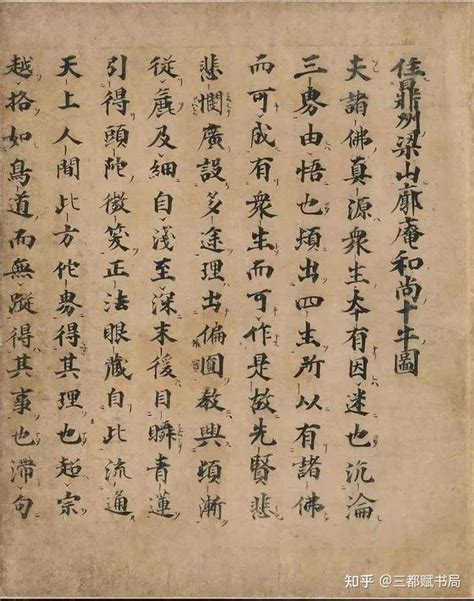 住鼎州梁山廓庵和尚十牛圖
夫諸佛真源衆生本有因迷也沉淪
三界由悟也頓出四生所以有諸佛
而可成有衆生而可作是故先賢悲
悲憫廣設多途理出偏圓教興頓漸
從麁及細自淺至深末後目瞬青蓮
引得頭陀微笑正法眼藏自此流通
天上人間此方佗界得其理也超宗
越格如鳥道而無蹤得其事也滯句
知乎 @三都赋书局